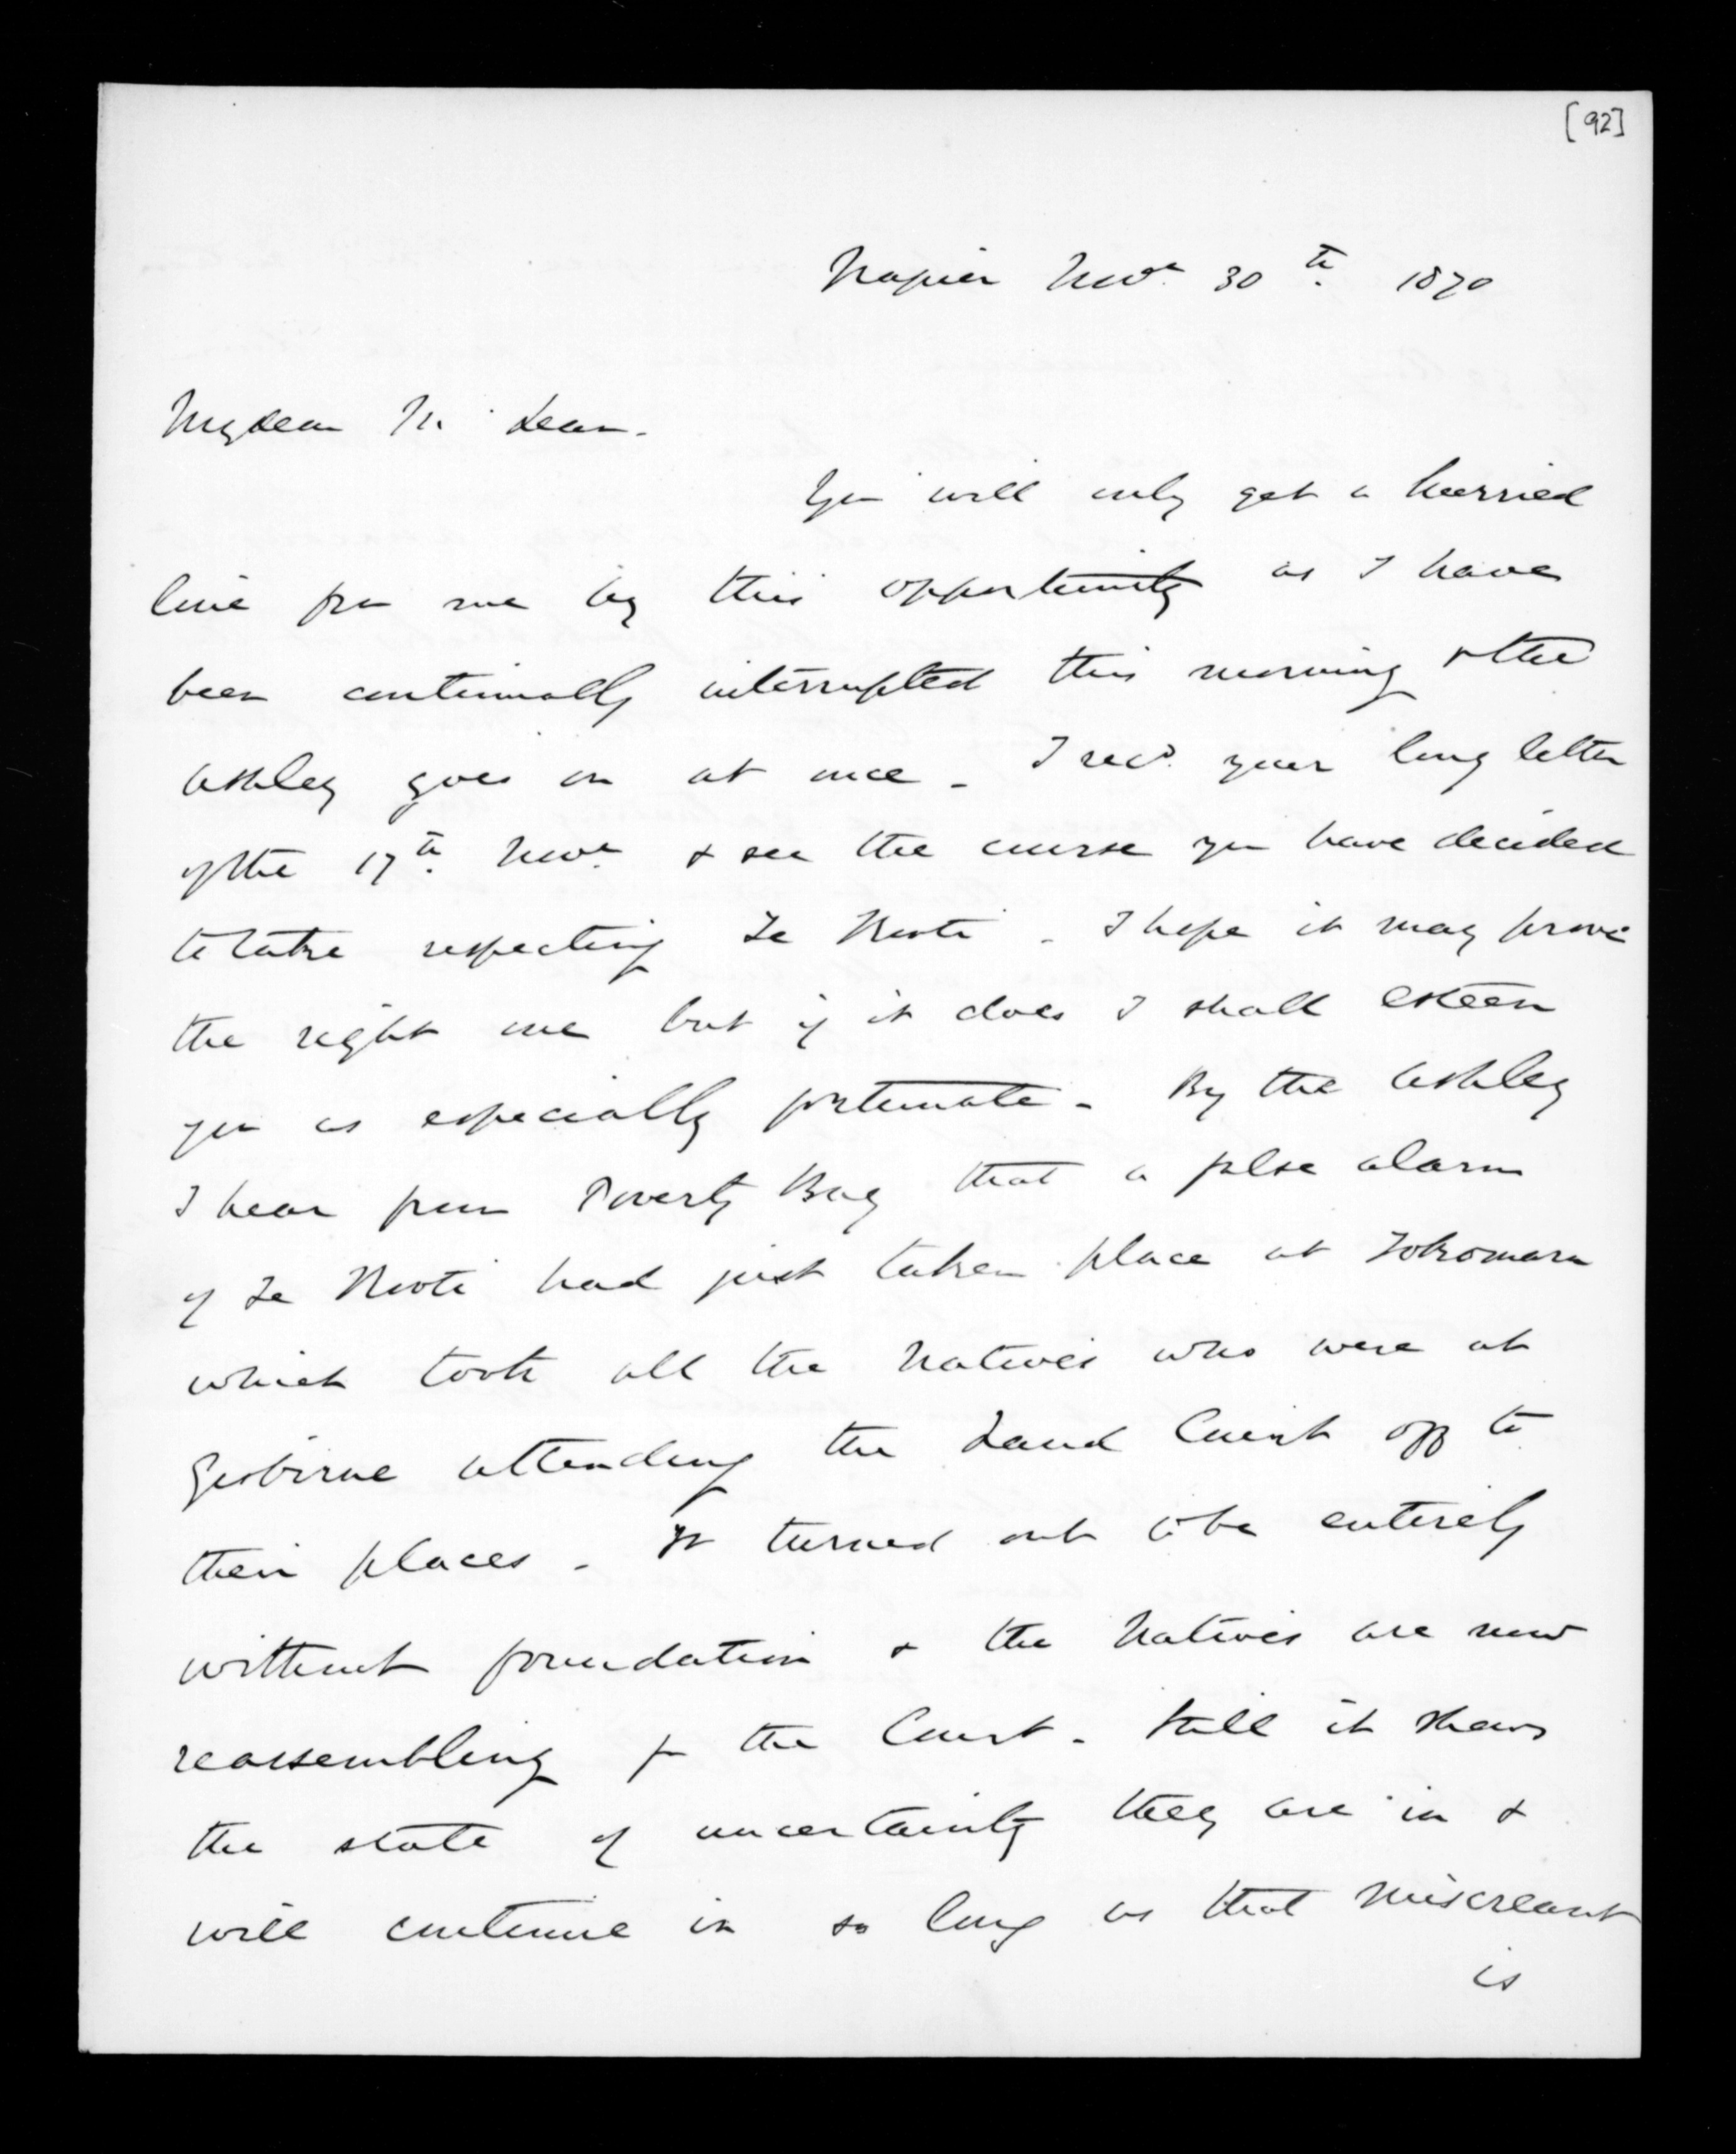 [92]
Napier Novr 30th 1870
My dear McLean.
You will only get a hurried
line from me by this opportunity as I have
been continually interrupted this morning & the
Ashley goes on at once - I recd your long letter
of the 17th Novr & see the course you have decided
to take respecting Te Kooti - I hope it may prove
the right one but if it does I shall esteem
you as especially fortunate - By the Ashley
I hear from Poverty Bay that a false alarm
of Te Kooti had just taken place at Tokomaru
which took all the Natives who were at
Gisborne attending the Land Court off to
their places - It turned out to be entirely
without foundation & the Natives are now
reassembling for the Court - Still it shews
the state of uncertainty they are in &
will continue in so long as that miscreant
is